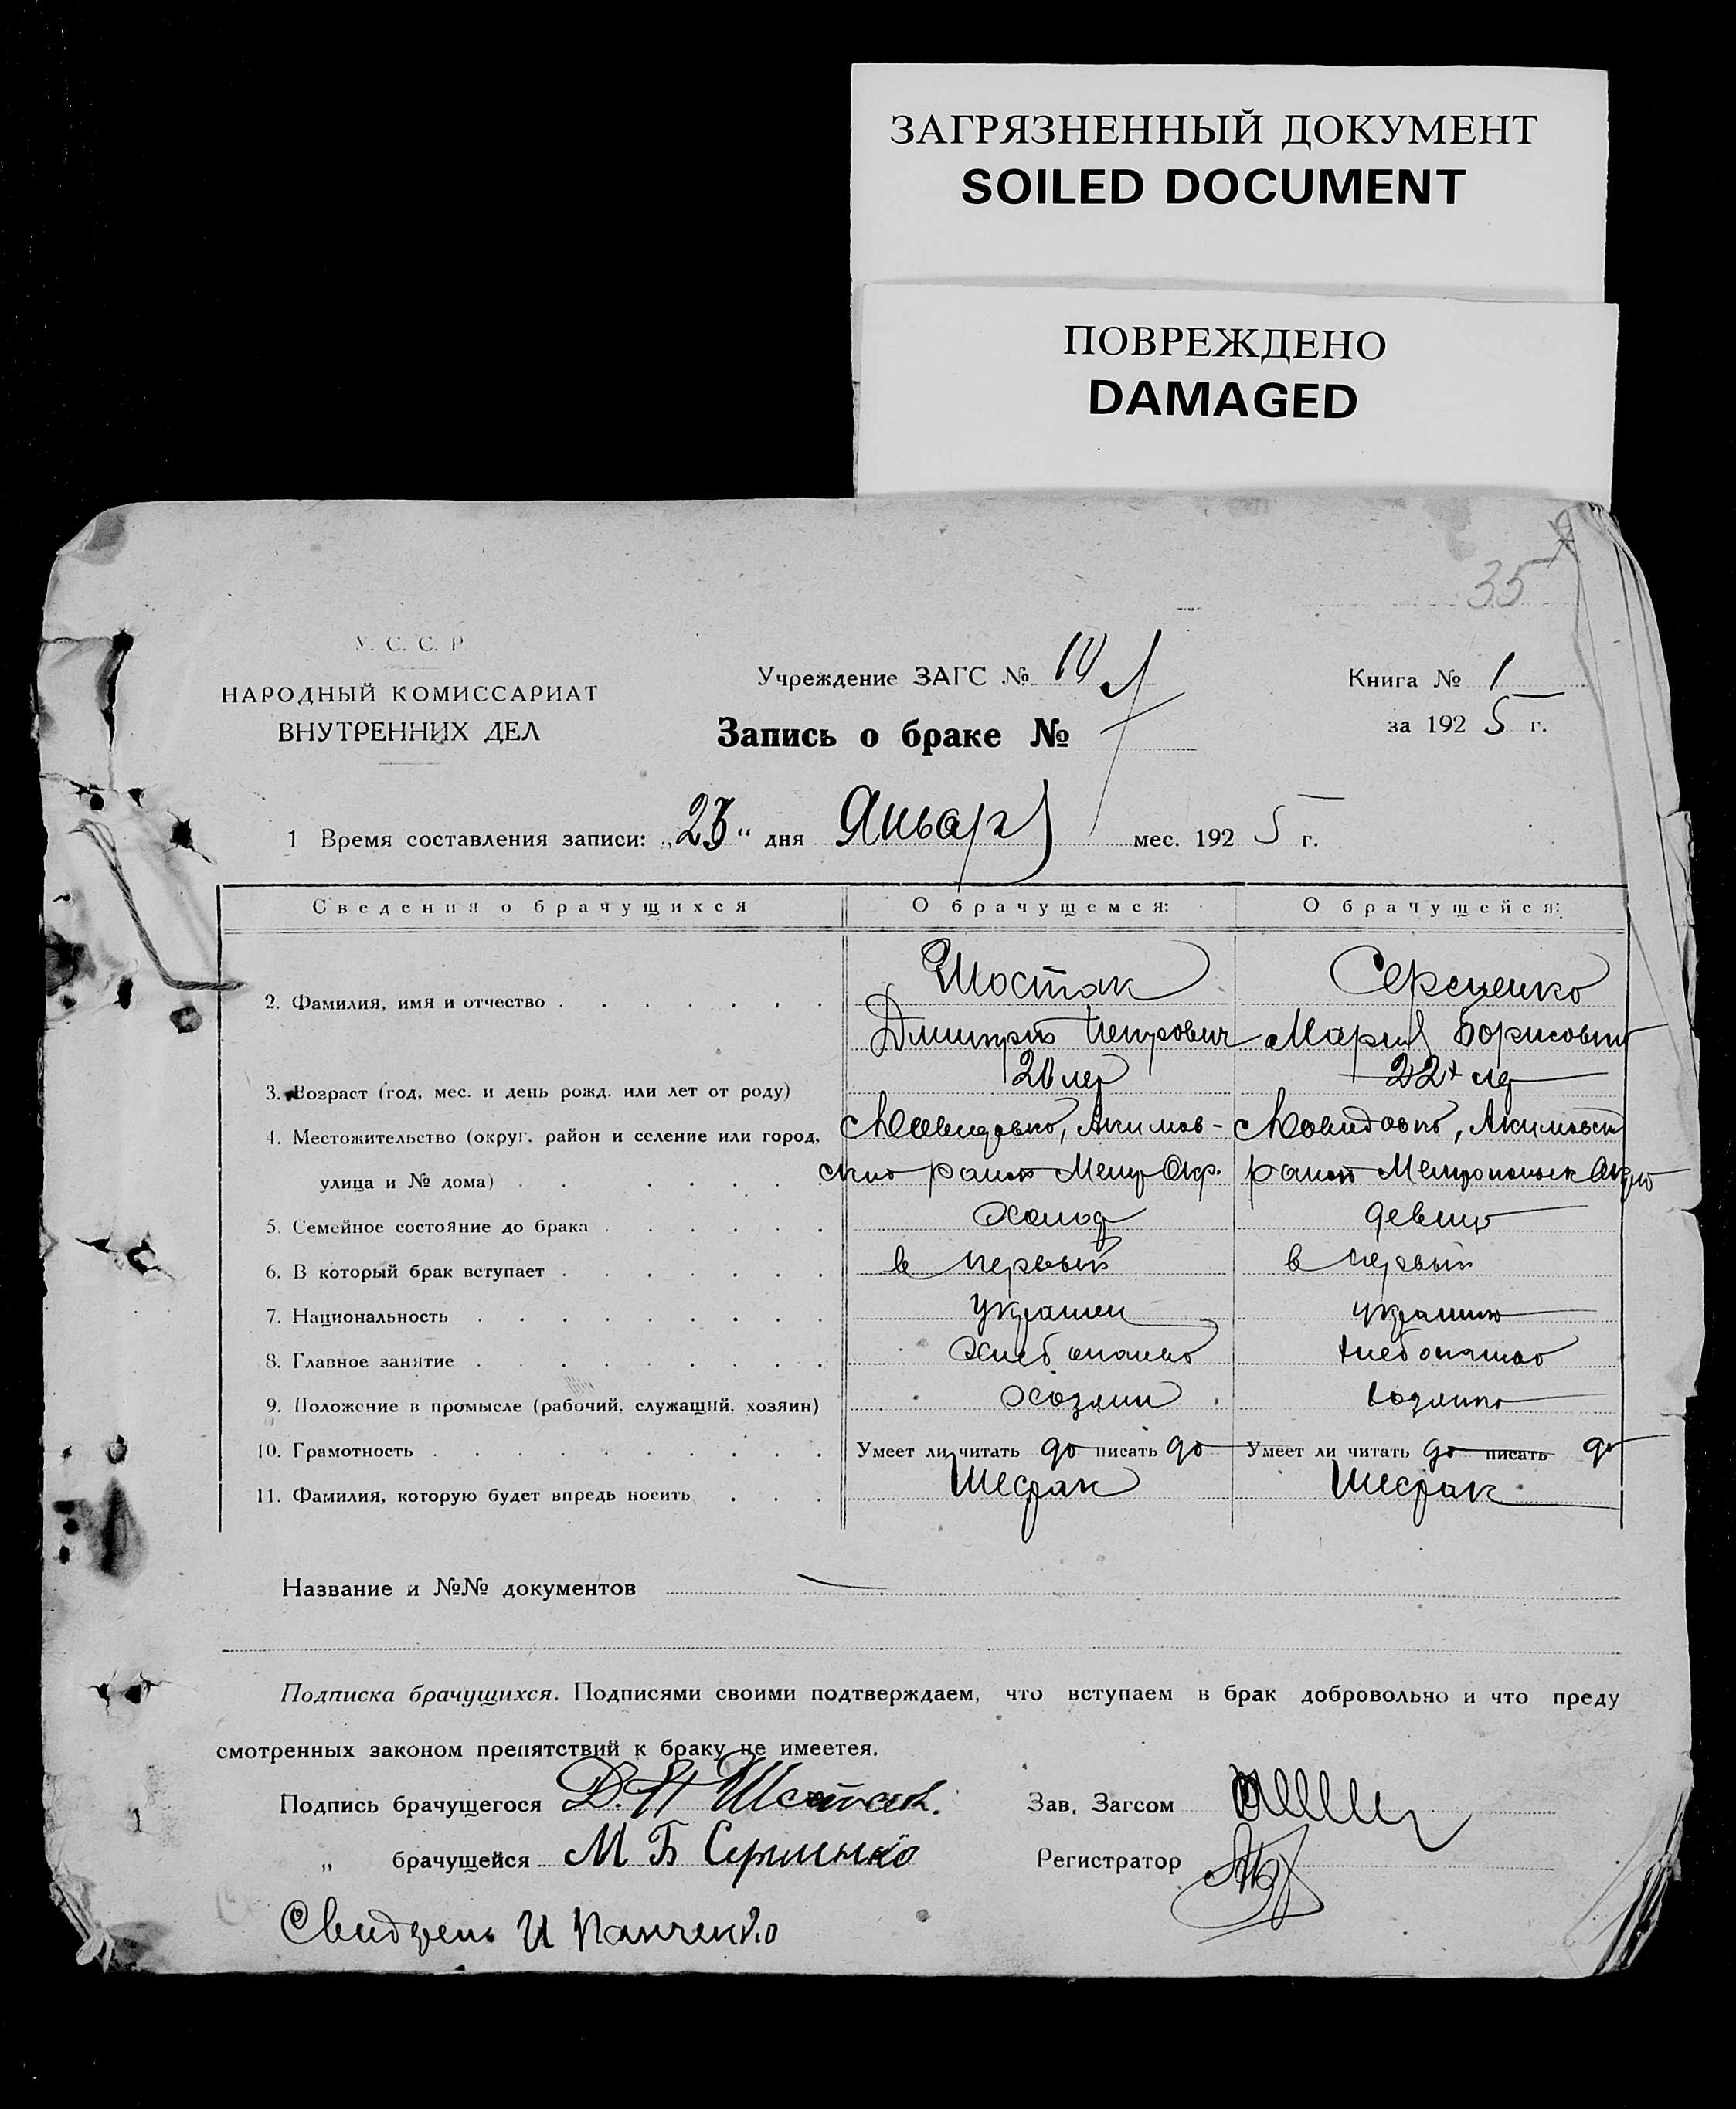 ЗАГРЯЗНЕННЫЙ ДОКУМЕНТ
SOILED DOCUMENT
ПОВРЕЖДЕНО
DAMAGED
35
У. С. С. Р
НАРОДНЫЙ КОМИССАРИАТ
ВНУТРЕННИХ ДЕЛ
Учреждение ЗАГС № 10
Запись о браке №
Книга № 1
за 1925 г.
1 Время составления записи: „23“ дня Январ мес. 1925 г.
Сведения о брачущихся О брачущемся: О брачущейся:
Шостак Серченко
2. Фамилия, имя и отчество
Дмитрий Петрович Мария Борисовна
20 лет 22 лет
3. Возраст (год, мес. и день рожд. или лет от роду)
4. Местожительство (округ. район и селение или город, Давидовка, Акимов- Давидовка, Акимовск
улица и № дома) ский район Мелит Окр. район Мелитопольск Округ
5. Семейное состояние до брака Холост девица
6. В который брак вступает в первый в первый
7. Национальность украинец украинка
8. Главное занятие Хлебопашество хлебопашество
9. Положение в промысле (рабочий, служащий. хозяин) хозяин хозяйка
10. Грамотность Умеет ли читать да писать да Умеет ли читать да писать да
11. Фамилия, которую будет впредь носить Шостак Шостак
Название и №№ документов —
Подписка брачущихся. Подписями своими подтверждаем, что вступаем в брак добровольно и что преду
смотренных законом препятствий к браку не имеетея.
Подпись брачущегося Д. П Шостак. Зав. Загсом
„ брачущейся М Б Серченко Регистратор
1
Свидетель И Панченко